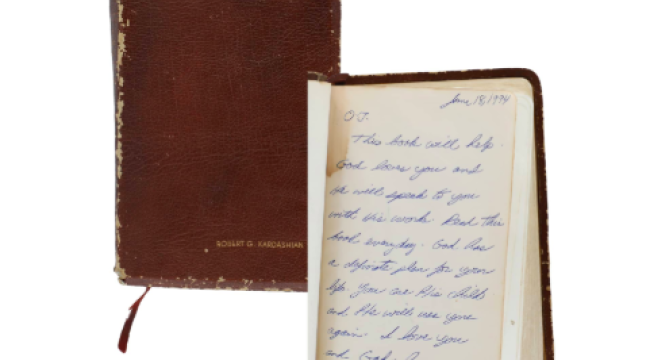 ROBERT G. KARDASHIAN
June 18, 1994
O.J.
This book will help.
God loves you and
He will speak to you
with His words. Read this
book everyday. God has
a definite plan for your
life. You are His child
and He will use you
again. I love you
and God